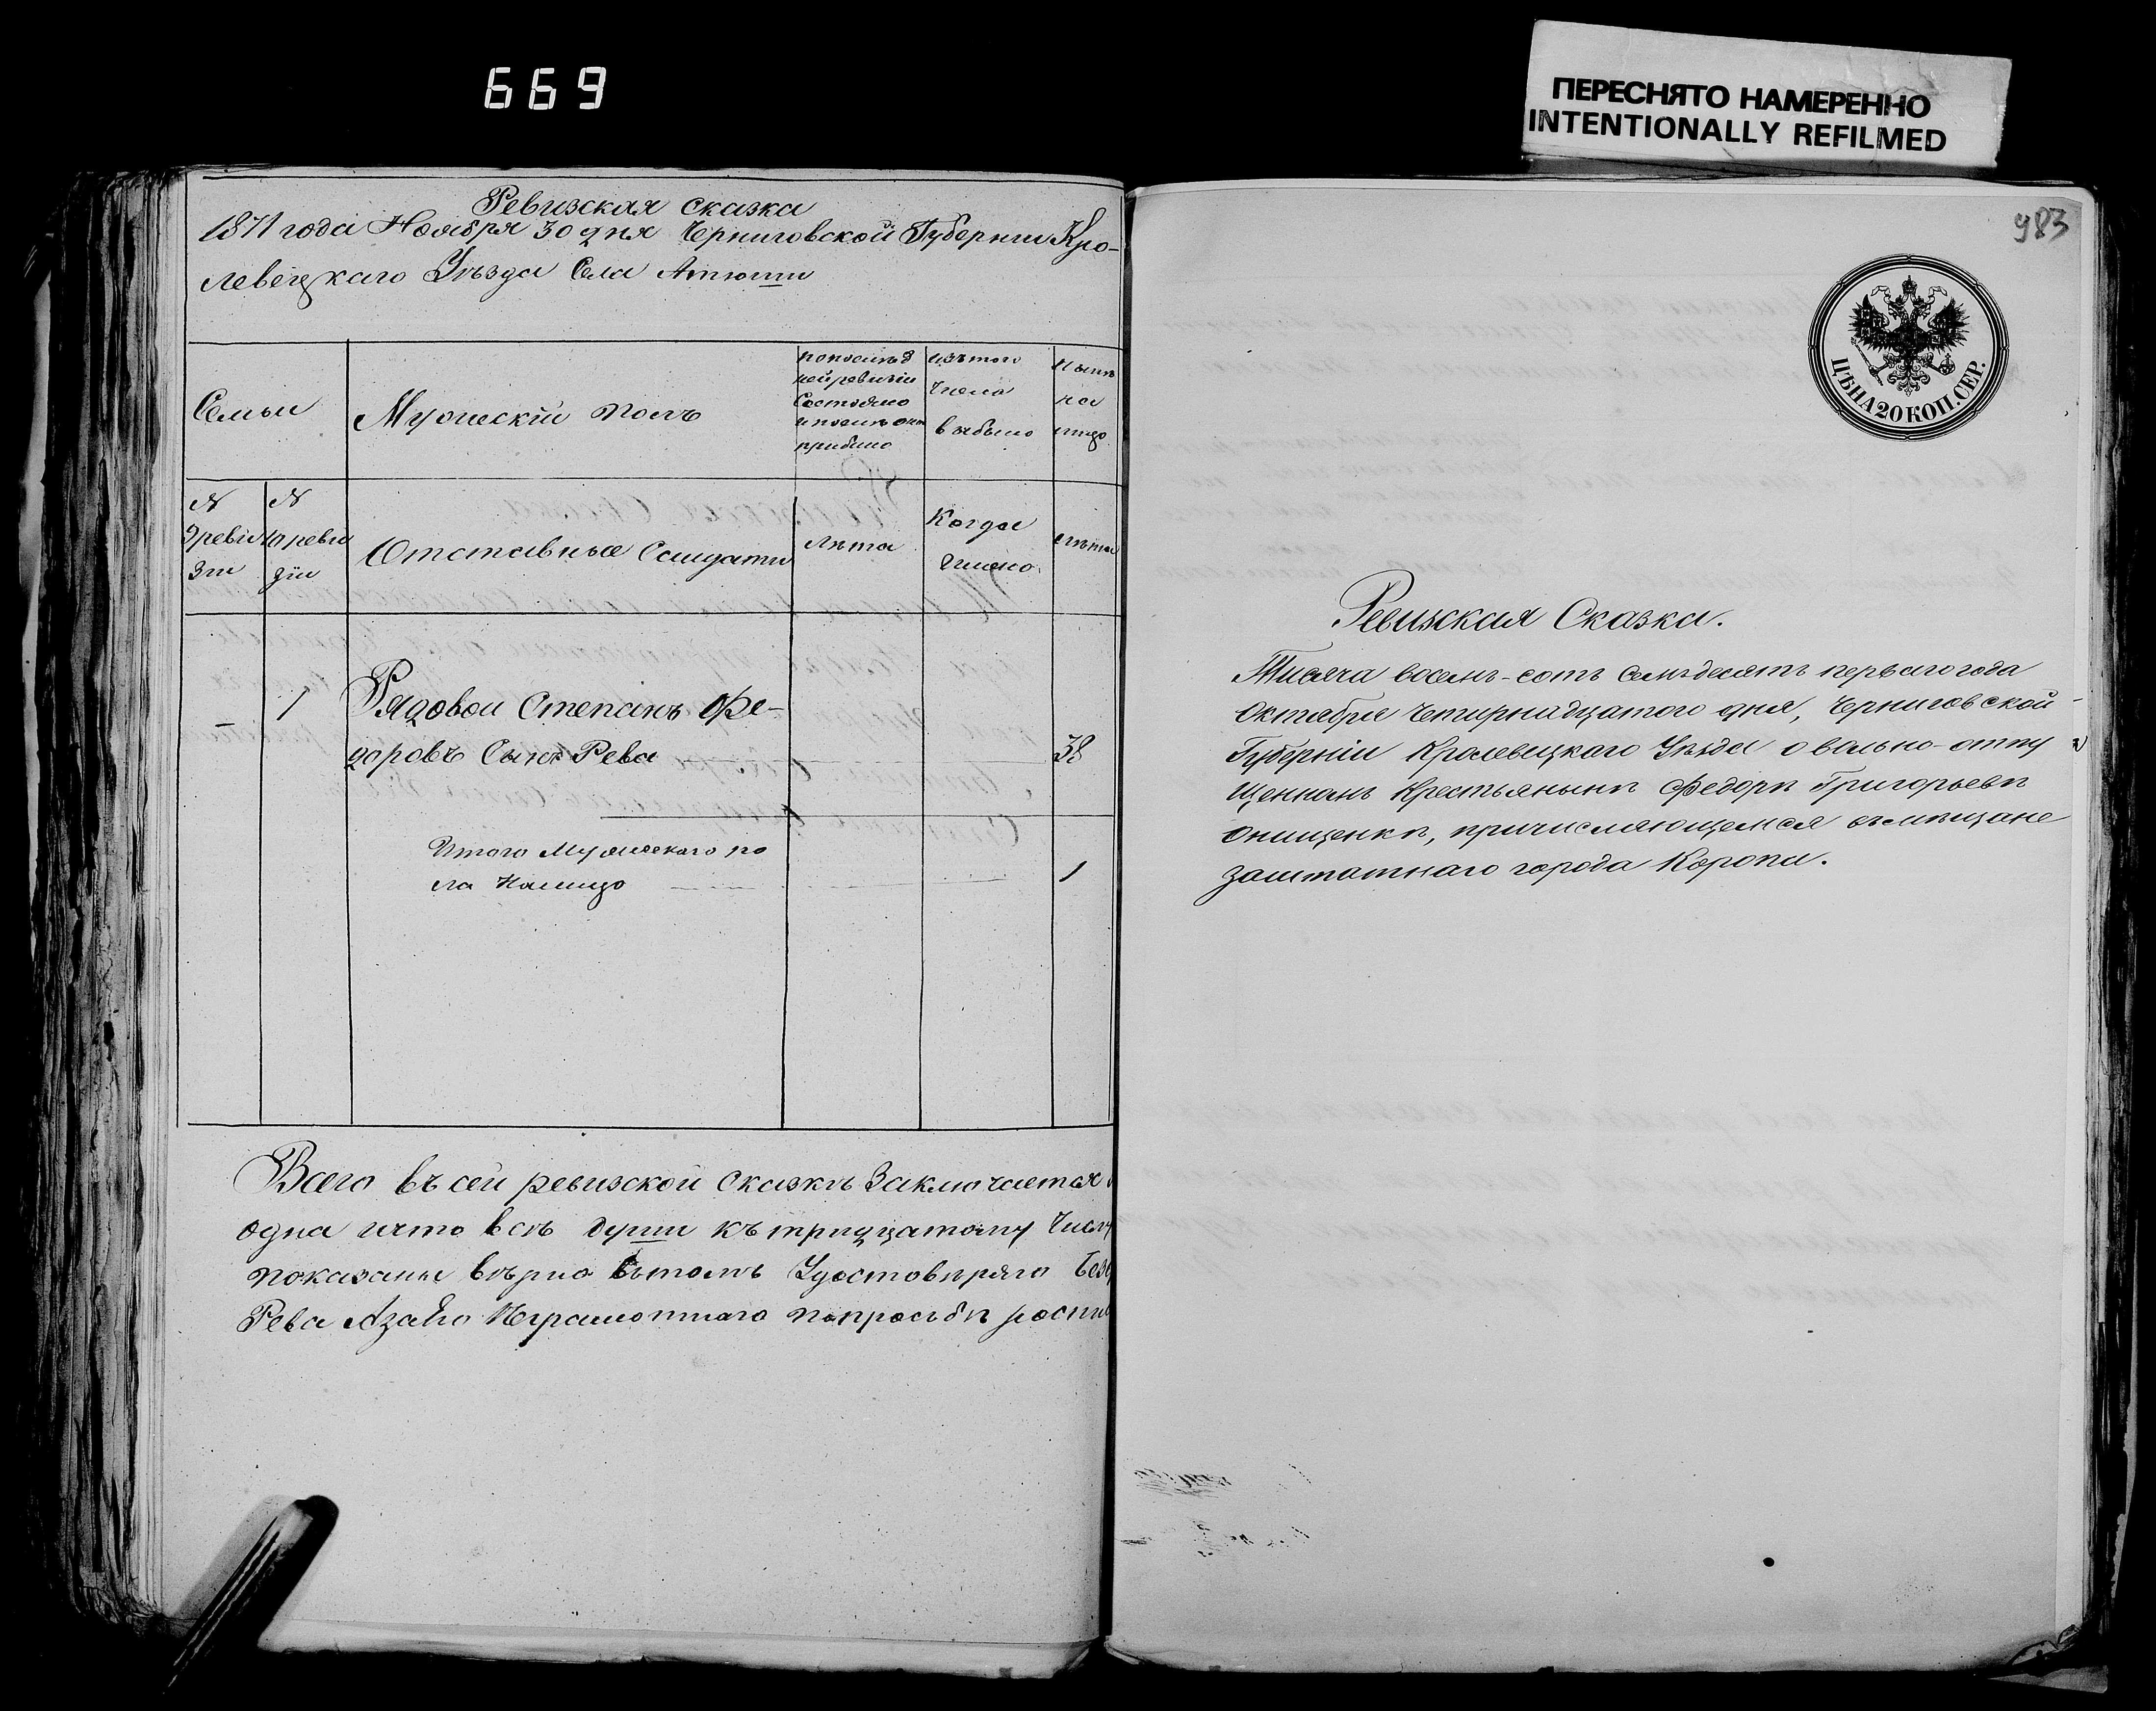 669
ПЕРЕСНЯТО НАМЕРЕННО
INTENTIONALLY REFILMED
Ревизская сказка
1871 года Ноября 30 дня Черниговской Губернии Кро-
левецкаго Уѣзда Села Атюши
Семьи
Мужескій полъ
по послѣд
ней ревизіи
Состояло
и послѣ оной
прибыло
изъ того
Числа
выбыло
Нынѣ
на
лицо
N
9 реви
зіи
N
10 реви
зіи
Отставные Солдаты
Лѣта
Когда
именно
лѣта
— 1 Рядовой Степанъ Фе-
доровъ Сынъ Рева 38
Итого Мужескаго по
ла Налицо 1
Всего въ сей ревизской сказкѣ Заключается
одна и что всѣ души къ тридцатому Числу
показаны вѣрно въ томъ Удостовѣряю
Рева А за Его Неграмотнаго по просьбѣ
983
ЦѢНА 20 КОП. СЕР.
Ревизская Сказка.
Тысяча восемь-сотъ семьдесятъ перваго года
Октября Четырнадцатого дня, Черниговской
Губерніи Кролевецкаго Уѣзда о вольно-отпу
щенномъ Крестьянынѣ Федорѣ Григорьевѣ
Онищенкѣ, причисляющемся въ мѣщане
заштатнаго города Коропа.